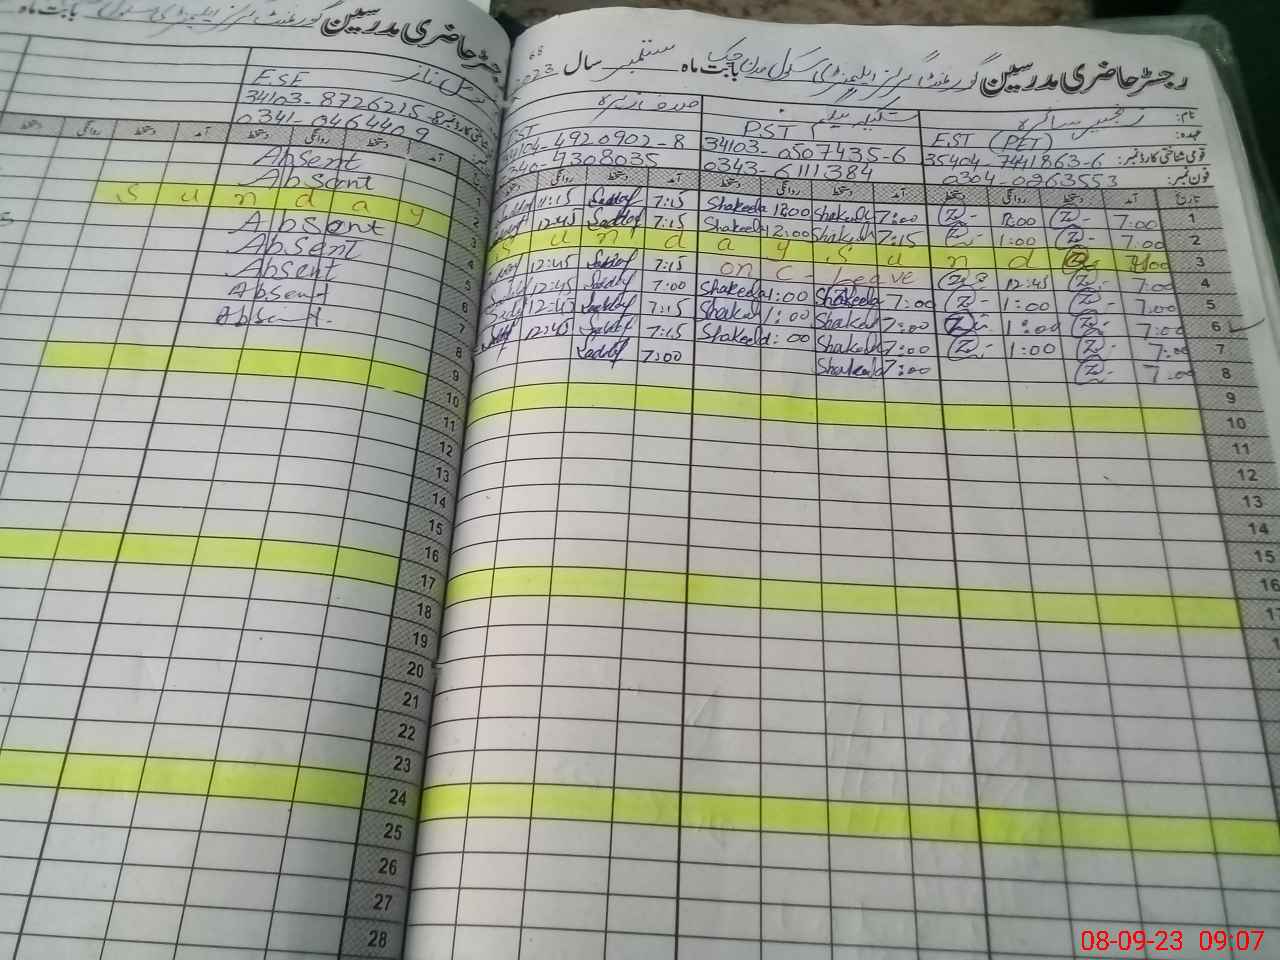 رجسٹر حاضری مدرسین گورنمنٹ گرلز ایلیمنٹری سکول بابت ماہ ستمبر سال 2023
نام:
عہدہ: EST (PET) PST PST
قومی شناختی کارڈ نمبر: 35404-7441863-6 34103-0507435-6 34104-4920902-8
فون نمبر: 0304-0263553 0343-6111384 0340-4308035
تاریخ آمد دستخط روانگی دستخط آمد دستخط روانگی دستخط آمد دستخط روانگی دستخط
1 7:00 12:00 7:00 Shakeela 12:00 Shakeela 7:15 Sadaf 11:15
2 7:00 1:00 7:15 Shakeela 12:00 Shakeela 7:15 Sadaf 12:45
3 7:00 Sunday Sunday
4 7:00 12:45 on C-Leave 7:15 Sadaf 12:45
5 7:00 1:00 7:00 Shakeela 1:00 Shakeela 7:00 Sadaf 12:45
6 7:00 1:00 7:00 Shakeela 1:00 Shakeela 7:15 Sadaf 12:45
7 7:00 1:00 7:00 Shakeela 1:00 Shakeela 7:15 Sadaf 12:45
8 7:00 7:00 Shakeela 7:00 Sadaf
9
10
11
12
13
14
15
16
رجسٹر حاضری مدرسین گورنمنٹ گرلز ایلیمنٹری سکول بابت ماہ
ESE
34103-8726215-8
0341-0464409
آمد دستخط روانگی دستخط آمد دستخط روانگی دستخط
1 Absent
2 Absent
3 Sunday
4 Absent
5 Absent
6 Absent
7 Absent
8 Absent
9
10
11
12
13
14
15
16
17
18
19
20
21
22
23
24
25
26
27
28
08-09-23 09:07